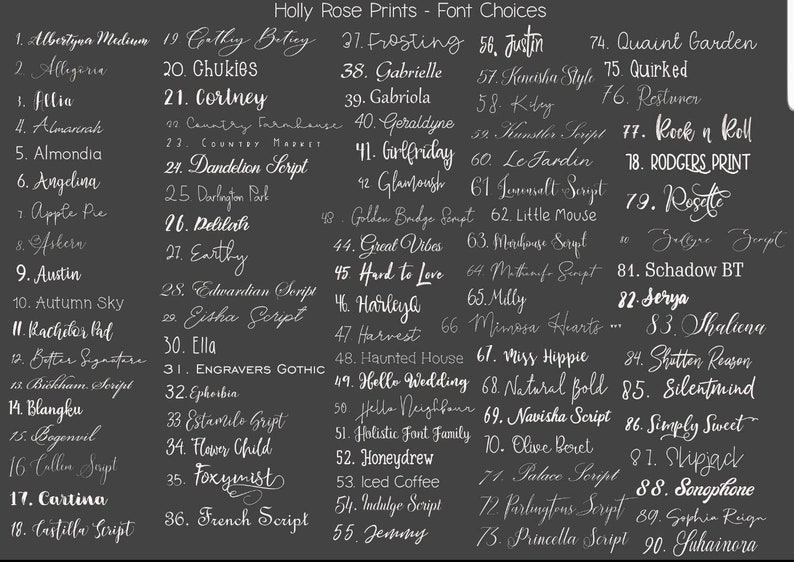 Holly Rose Prints - Font Choices
1. Albertyna Medium
2. Allegoria
3. Allia
4. Almarirah
5. Almondia
6. Angelina
7. Apple Pie
8. Askera
9. Austin
10. Autumn Sky
11. Bachelor Pad
12. Better Signature
13. Bickham Script
14. Blangku
15. Bogenvil
16 Cullen Script
17. Cartina
18. Castilla Script
19. Cathy Betiey
20. Chukies
21. Cortney
22. Country Farmhouse
23. Country Market
24. Dandelion Script
25. Darlington Park
26. Delilah
27. Earthy
28. Edwardian Script
29. Eisha Script
30. Ella
31. Engravers Gothic
32. Ephorbia
33 Estamilo Script
34. Flower Child
35. Foxymist
36. French Script
37. Frosting
38. Gabrielle
39. Gabriola
40. Geraldyne
41. Girlfriday
42. Glamoush
43. Golden Bridge Script
44. Great Vibes
45 Hard to Love
46. HarleyQ
47 Harvest
48. Haunted House
49. Hello Wedding
50. Hello Neighbour
51. Holistic Font Family
52. Honeydrew
53. Iced Coffee
54. Indulge Script
55. Jemmy
56. Justin
57. Keneisha Style
58. Kiley
59. Kunstler Script
60. Le Jardin
61. Lemonsalt Script
62. Little Mouse
63. Marchouse Script
64. Script
65. Milly
66. Mimosa Hearts
67. Miss Hippie
68. Natural Bold
69. Navisha Script
70. Olive Beret
71. Palace Script
72. Parlingtons Script
73. Princella Script
74. Quaint Garden
75. Quirked
76. Restruner
77. Rock n Roll
78. Rodgers Print
79. Rosette
80. Script
81. Schadow BT
82. Serya
83. Shaliena
84. Shutten Reason
85. Silentmind
86. Simply Sweet
87. Skipjack
88. Sonophone
89. Sophia Reign
90. Suhainora